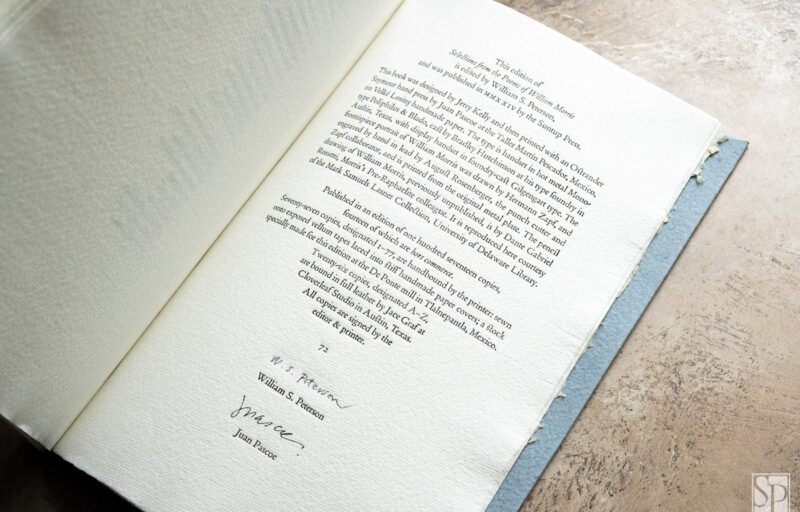 This edition of
Selections from the Poems of William Morris
is edited by William S. Peterson,
and was published in MMXXIV by the Suntup Press.
This book was designed by Jerry Kelly and then printed with an Ostrander
Seymour hand press by Juan Pascoe at the Taller Martín Pescador, Mexico,
on Velké Losiny handmade paper. The type is handset in hot metal Mono-
type Poliphilus & Blado, cast by Bradley Hutchinson at his type foundry in
Austin, Texas, with display handset in foundry-cast Gilgengart type. The
frontispiece portrait of William Morris was drawn by Hermann Zapf, and
engraved by hand in lead by August Rosenberger, the punch cutter and
Zapf collaborator, and is printed from the original metal plate. The pencil
drawing of William Morris, previously unpublished, is by Dante Gabriel
Rossetti, Morris's Pre-Raphaelite colleague. It is reproduced here courtesy
of the Mark Samuels Lasner Collection, University of Delaware Library.
Published in an edition of one hundred seventeen copies,
fourteen of which are hors commerce.
Seventy-seven copies, designated 1–77, are handbound by the printer: sewn
onto exposed vellum tapes laced into stiff handmade paper covers; a stock
specially made for this edition at the De Ponte mill in Tlalnepantla, Mexico.
Twenty-six copies, designated A–Z,
are bound in full leather by Jace Graf at
Cloverleaf Studio in Austin, Texas.
All copies are signed by the
editor & printer.
72
W. S. Peterson
William S. Peterson
Jpascoe.
Juan Pascoe
SP